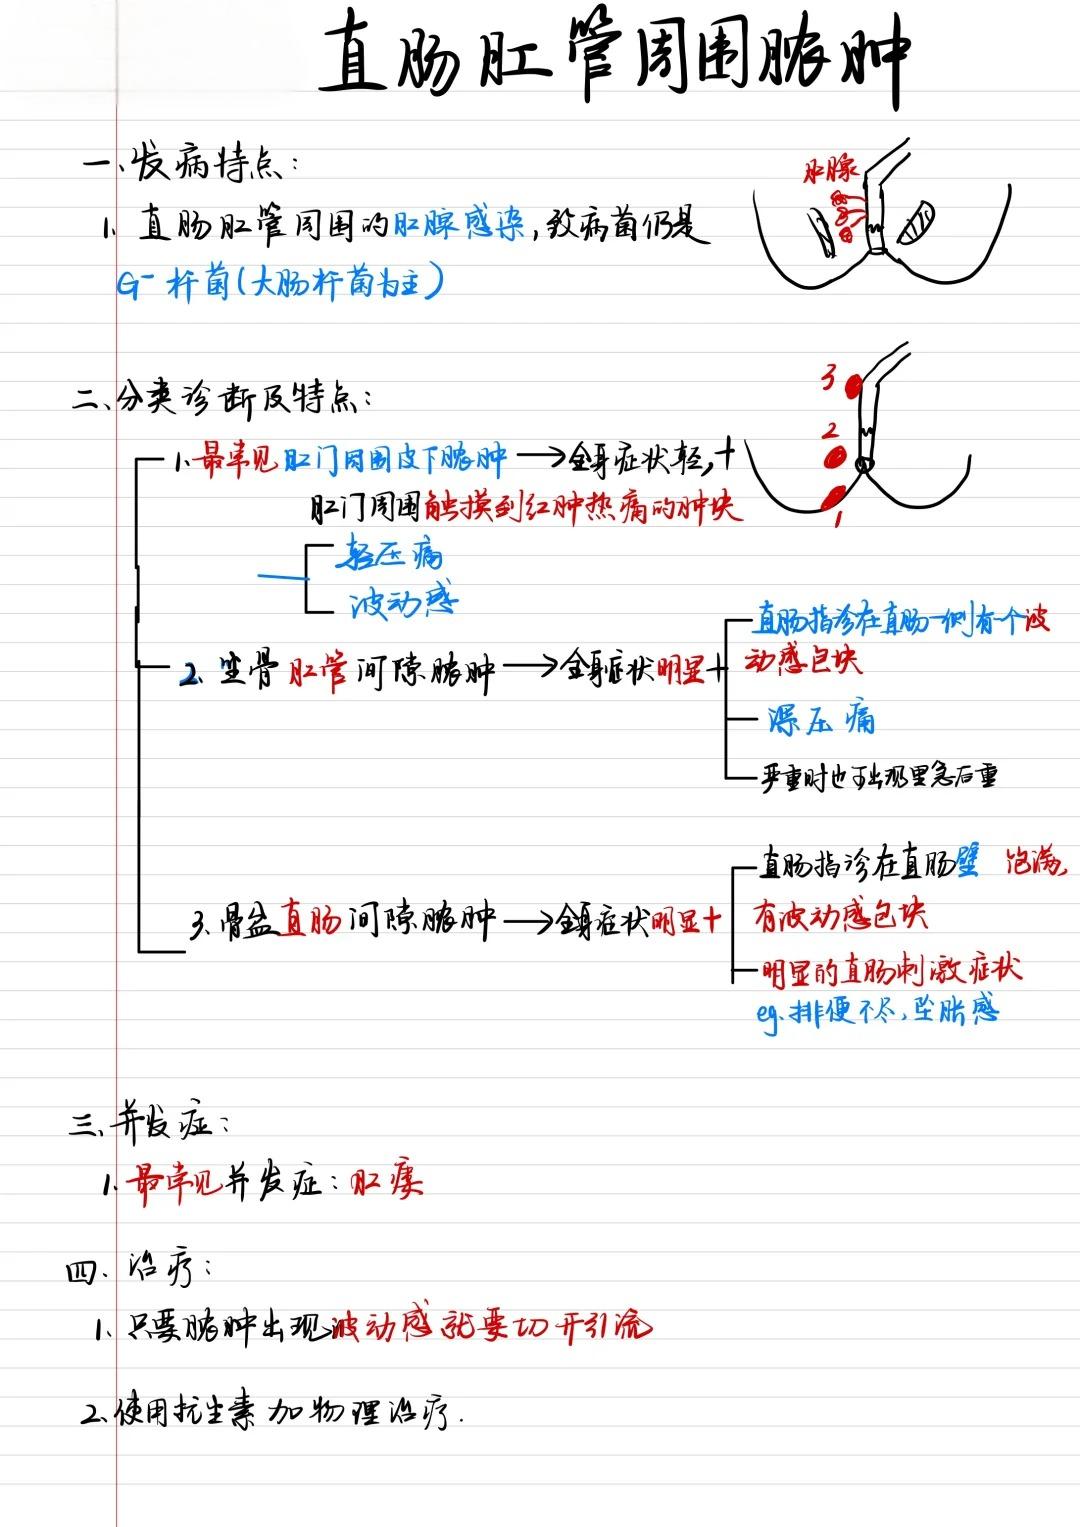 直肠肛管周围脓肿
一、发病特点：
肛腺
1. 直肠肛管周围的肛腺感染，致病菌仍是
G⁻杆菌（大肠杆菌为主）
二、分类诊断及特点：
3
2
1
1. 最常见肛门周围皮下脓肿→全身症状轻，+
肛门周围触摸到红肿热痛的肿块
轻压痛
波动感
直肠指诊在直肠一侧有个波
2. 坐骨肛管间隙脓肿→全身症状明显+
动感包块
深压痛
严重时也可出现里急后重
直肠指诊在直肠壁 饱满，
3. 骨盆直肠间隙脓肿→全身症状明显+
有波动感包块
明显的直肠刺激症状
eg. 排便不尽，坠胀感
三、并发症：
1. 最常见并发症：肛瘘
四、治疗：
1. 只要脓肿出现波动感就要切开引流
2. 使用抗生素加物理治疗.